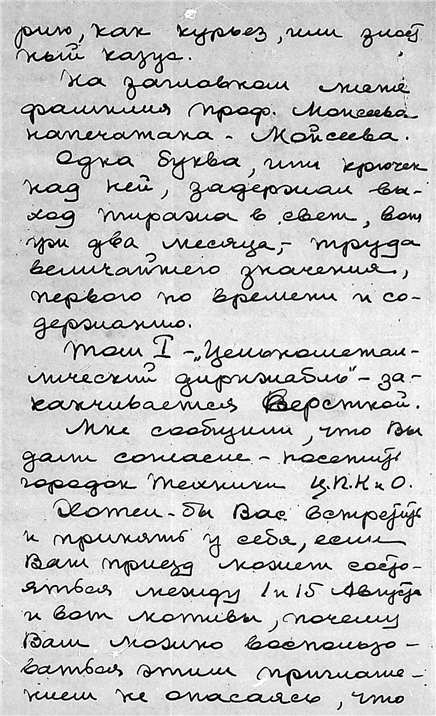 рию, как курьез, или злост
ный казус.
На заглавном листе
фамилия проф. Моисеева
напечатана - Мойсеева.
Одна буква, или крючек
над ней, задержал вы-
ход тиража в свет, вот
уже два месяца, - труда
величайшего значения,
первого по времени и со-
держанию.
Том I - „Цельнометал-
лический дирижабль" - за-
канчивается Версткой.
Мне сообщили, что Вы
дали согласие - посетить
городок Техники Ц.П.К и О.
Хотел-бы Вас встретить
и принять у себя, если
Ваш приезд может состо-
яться между 1 и 15 Августа
и вот мотивы, почему
Вам можно воспользо-
ваться этим приглаше-
нием не опасаясь, что